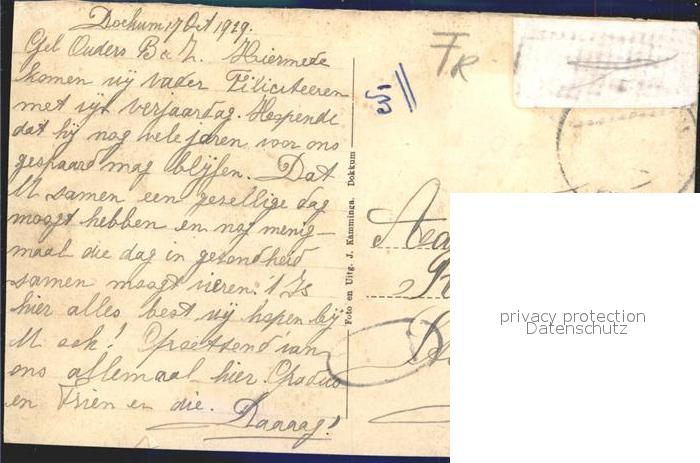 Dockum 17 Oct 1929.
Gel Ouders B & Z. Hiermede
komen wij vader Filiciteeren
met zijn verjaardag. Hopende
dat hij nog vele jaren voor ons
gespaard mag blijfen. Dat
U samen een gesellige dag
moogt hebben en nog menig-
maal die dag in gesondheid
samen moogt vieren. 't Is
hier alles best wij hopen bij
U ook! van
ons allemaal hier.
en Trien en die. Daaaag!
FR
Foto en Uitg. J. Kamminga. Dokkum
privacy protection
Datenschutz